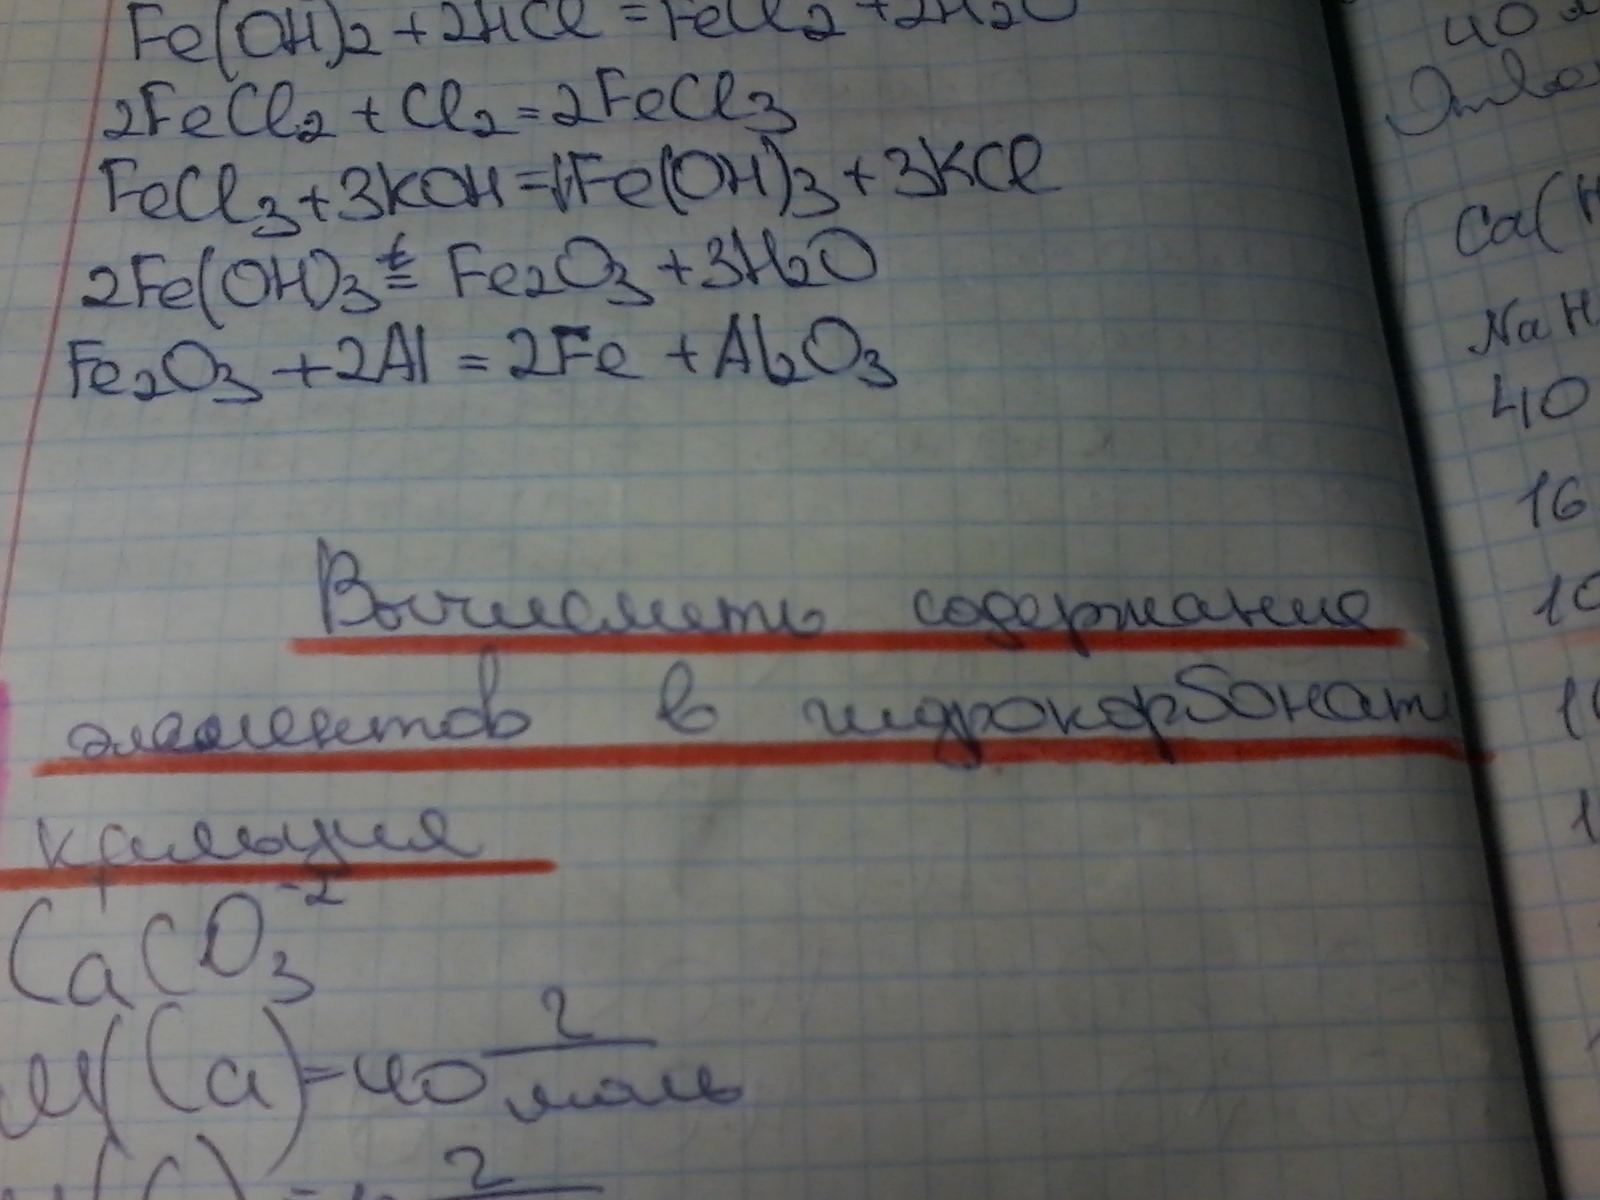 Fe(OH)2 + 2HCl = FeCl2 + 2H2O
2FeCl2 + Cl2 = 2FeCl3
FeCl3 + 3KOH = Fe(OH)3 + 3KCl
2Fe(OH)3 t= Fe2O3 + 3H2O
Fe2O3 + 2Al = 2Fe + Al2O3
Вычислить содержание
элементов в гидрокорбонат
кальция
CaCO3 -2
M(Ca) = 40 г/моль
г
40
Ca(H
NaH
40
16